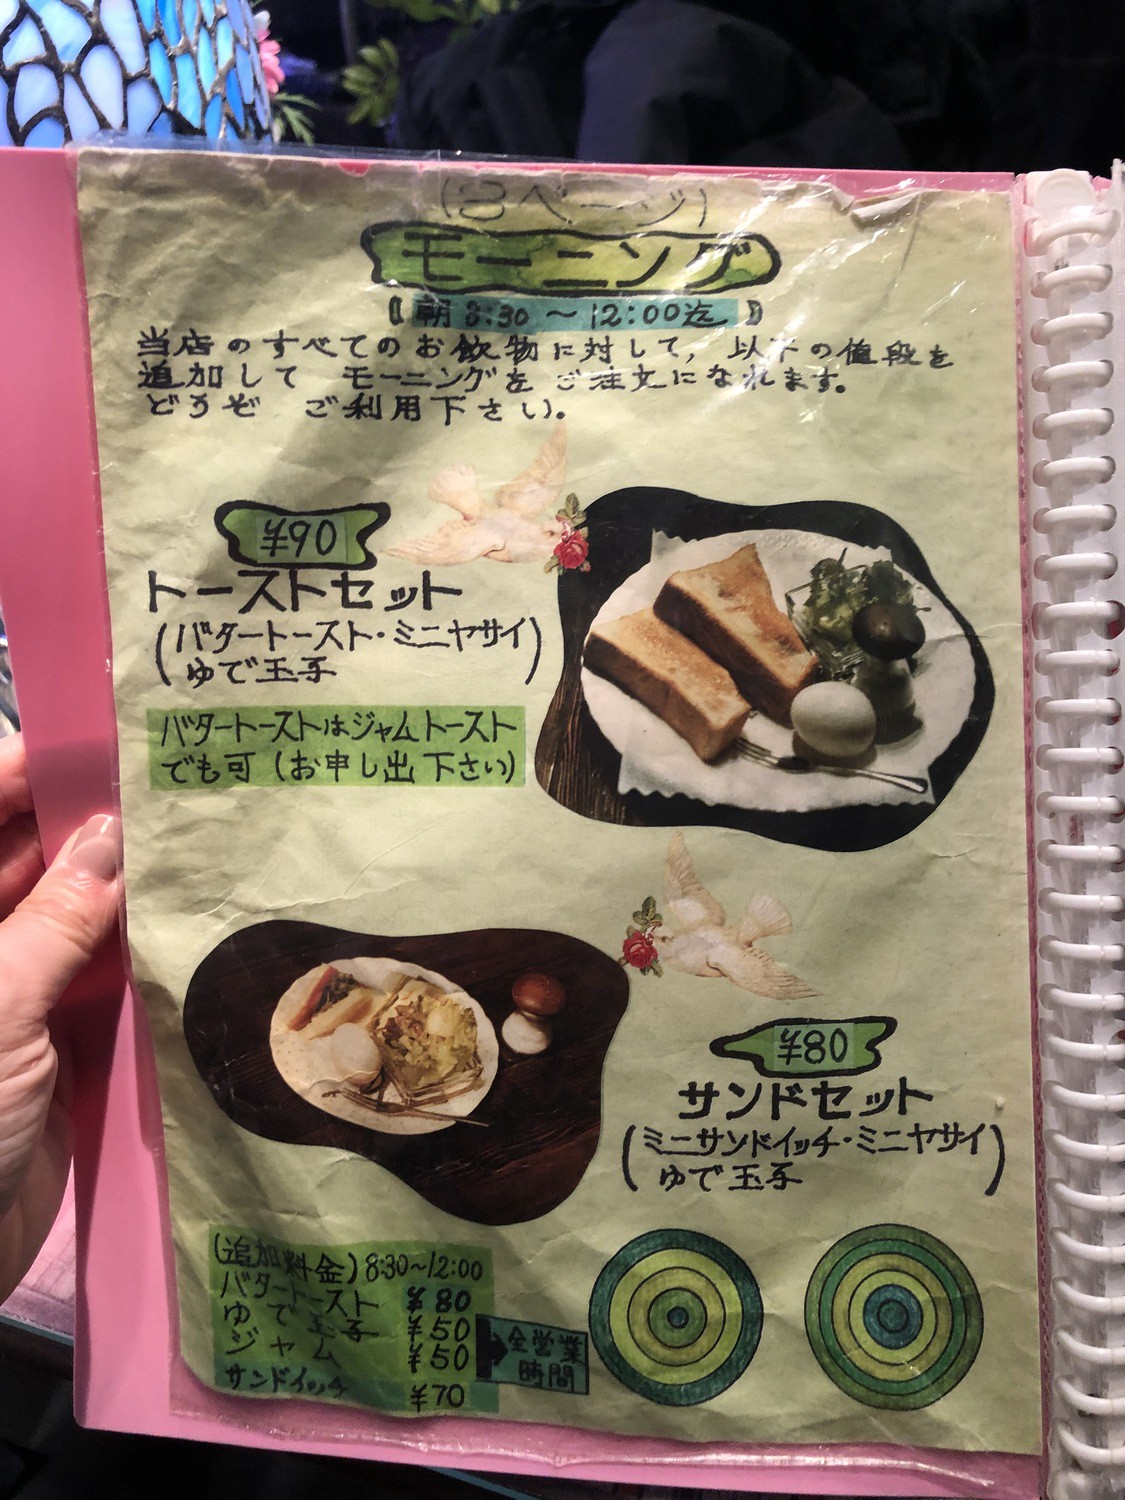 (3ページ)
モーニング
【朝 8:30 〜 12:00迄】
当店のすべてのお飲物に対して、以下の値段を
追加して モーニングを ご注文になれます。
どうぞ ご利用下さい。
¥90
トーストセット
(バタートースト・ミニヤサイ
ゆで玉子)
バタートーストはジャムトースト
でも可(お申し出下さい)
¥80
サンドセット
(ミニサンドイッチ・ミニヤサイ
ゆで玉子)
(追加料金) 8:30〜12:00
バタートースト ¥80
ゆで玉子 ¥50
ジャム ¥50
サンドイッチ ¥70
全営業
時間